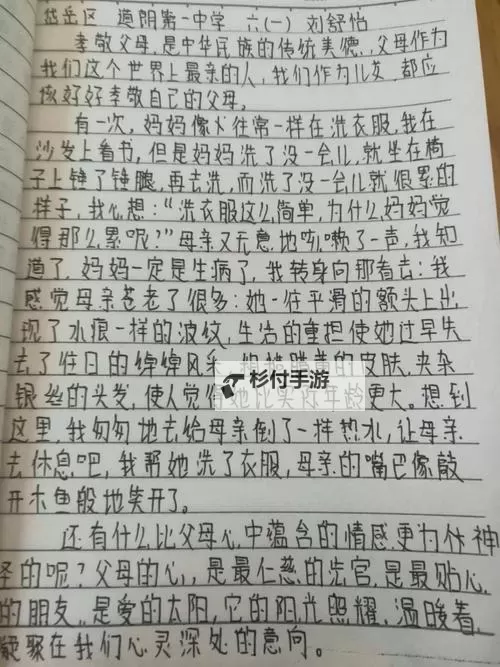 岱岳区 道朗第一中学 六(一) 刘舒怡
孝敬父母,是中华民族的传统美德,父母作为
我们这个世界上最亲的人,我们作为儿女 都应
该好好孝敬自己的父母。
有一次,妈妈像以往常一样在洗衣服,我在
沙发上看书,但是妈妈洗了没一会儿,就坐在椅
子上锤了锤腿,再去洗,而洗了没一会儿就很累的
样子,我心想:“洗衣服这么简单,为什么妈妈觉
得那么累呢?”母亲又无意地咳嗽了一声,我知
道了,妈妈一定是生病了,我转身向那看去:我
感觉母亲苍老了很多:她一往平滑的额头上出
现了水痕一样的波纹,生活的重担使她过早失
去了往日的绰绰风采,粗糙 的皮肤,夹杂
银丝的头发,使人觉得她比实际年龄更大。想到
这里,我匆匆地去给母亲倒了一样热水,让母亲
去休息吧,我帮她洗了衣服,母亲的嘴巴像敲
开木鱼般地笑开了。
还有什么比父母心中蕴含的情感更为 神
圣的呢?父母的心,是最仁慈的 官,是最贴心
的朋友,是爱的太阳,它的阳光照耀,温暖着
凝聚在我们心灵深处的意向。
杉付手游